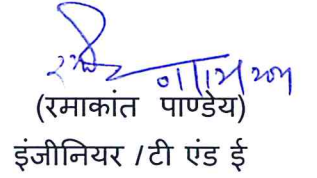 (रमाकांत पाण्डेय)
इंजीनियर /टी एंड ई